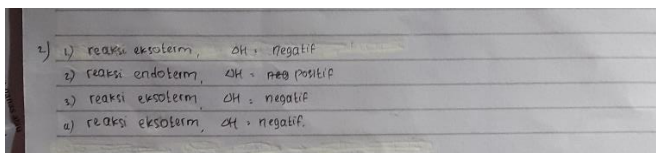 2) 1) reaksi eksoterm, ΔH = negatif
2) reaksi endoterm, ΔH = positif
3) reaksi eksoterm, ΔH = negatif
4) reaksi eksoterm, ΔH = negatif.